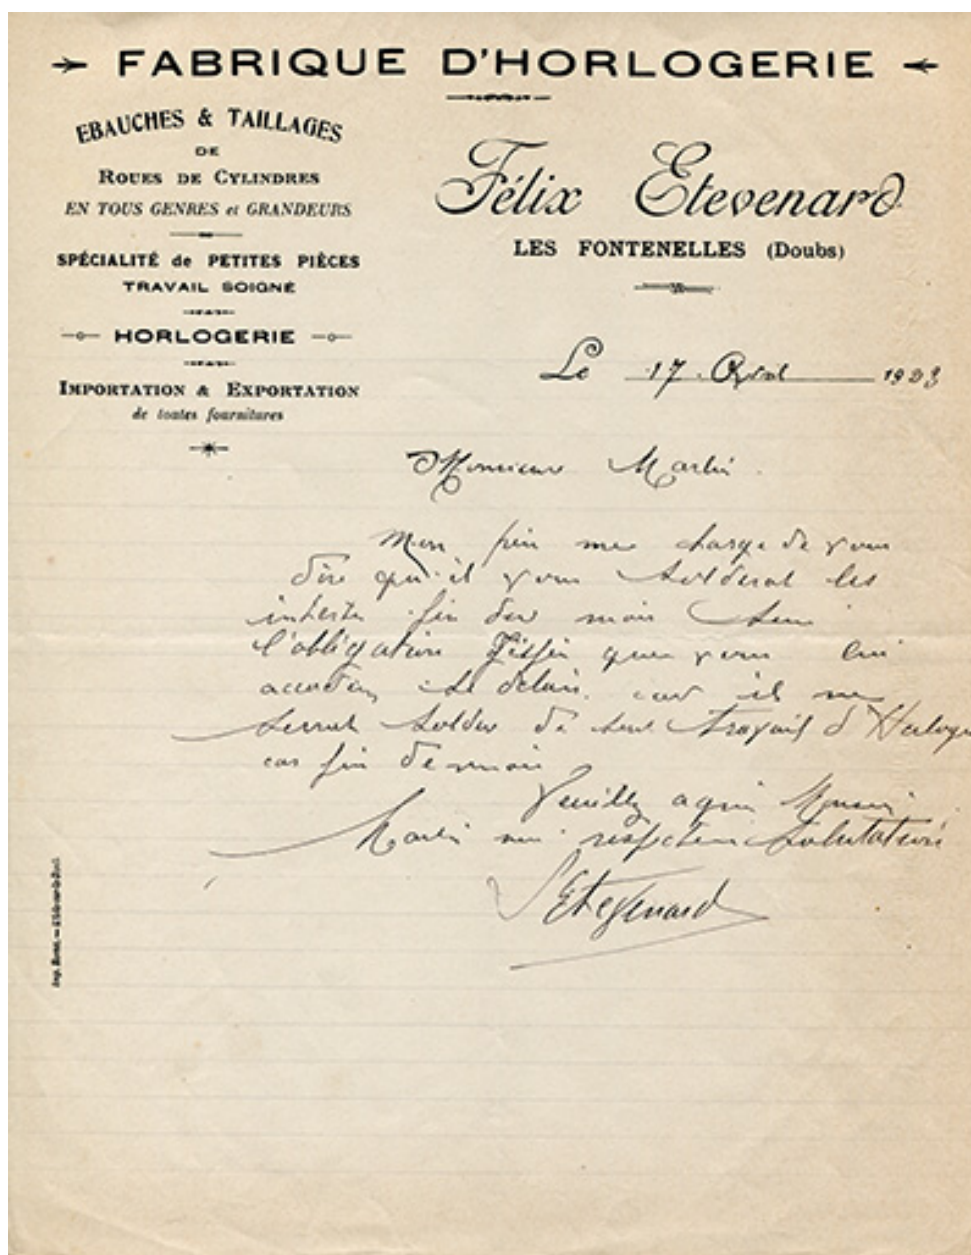 FABRIQUE D'HORLOGERIE
EBAUCHES & TAILLAGES
DE
ROUES DE CYLINDRES
EN TOUS GENRES et GRANDEURS
SPÉCIALITÉ de PETITES PIÈCES
TRAVAIL SOIGNÉ
HORLOGERIE
IMPORTATION & EXPORTATION
de toutes fournitures
Félix Etevenard
LES FONTENELLES (Doubs)
Le 17 Avril
Monsieur Martin
Mon me charge de vous
dire qu'il vous solderat les
fin de mois
l'obligation que vous lui
accordez délais car il me
solder de travail d'Horloge
fin de mois
Veuillez agréer Monsieur
Martin mes respectueuses salutations
Etevenard